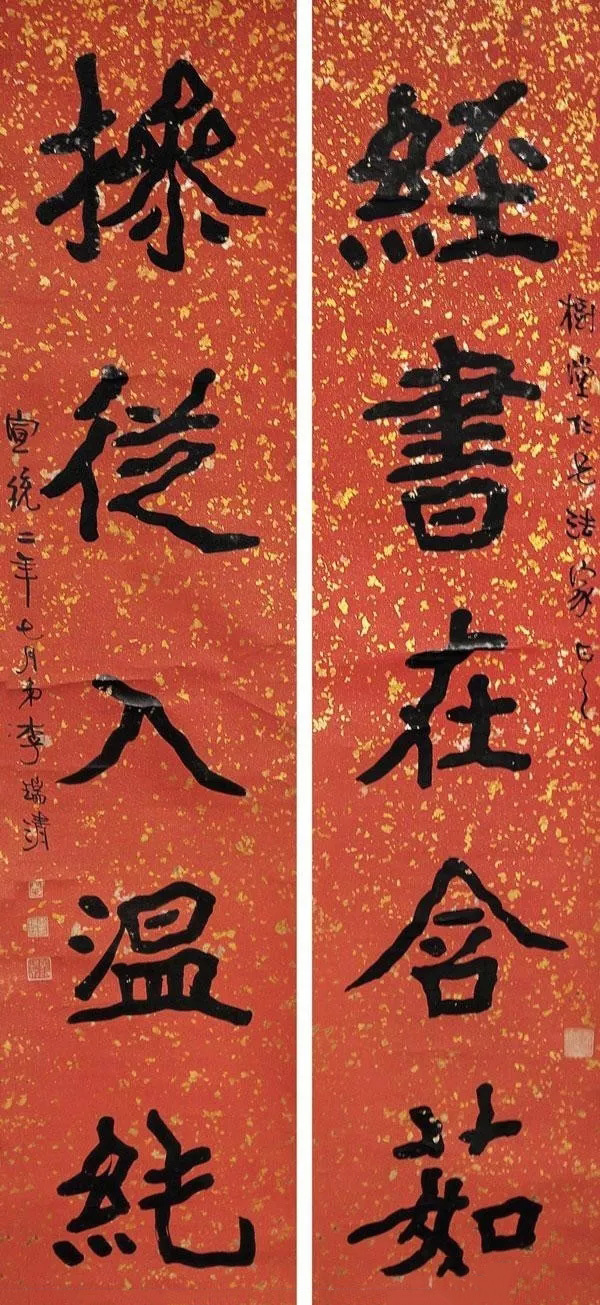 樹堂仁兄法家正之
經書在含茹
操從入溫純
宣統二年七月弟李瑞清